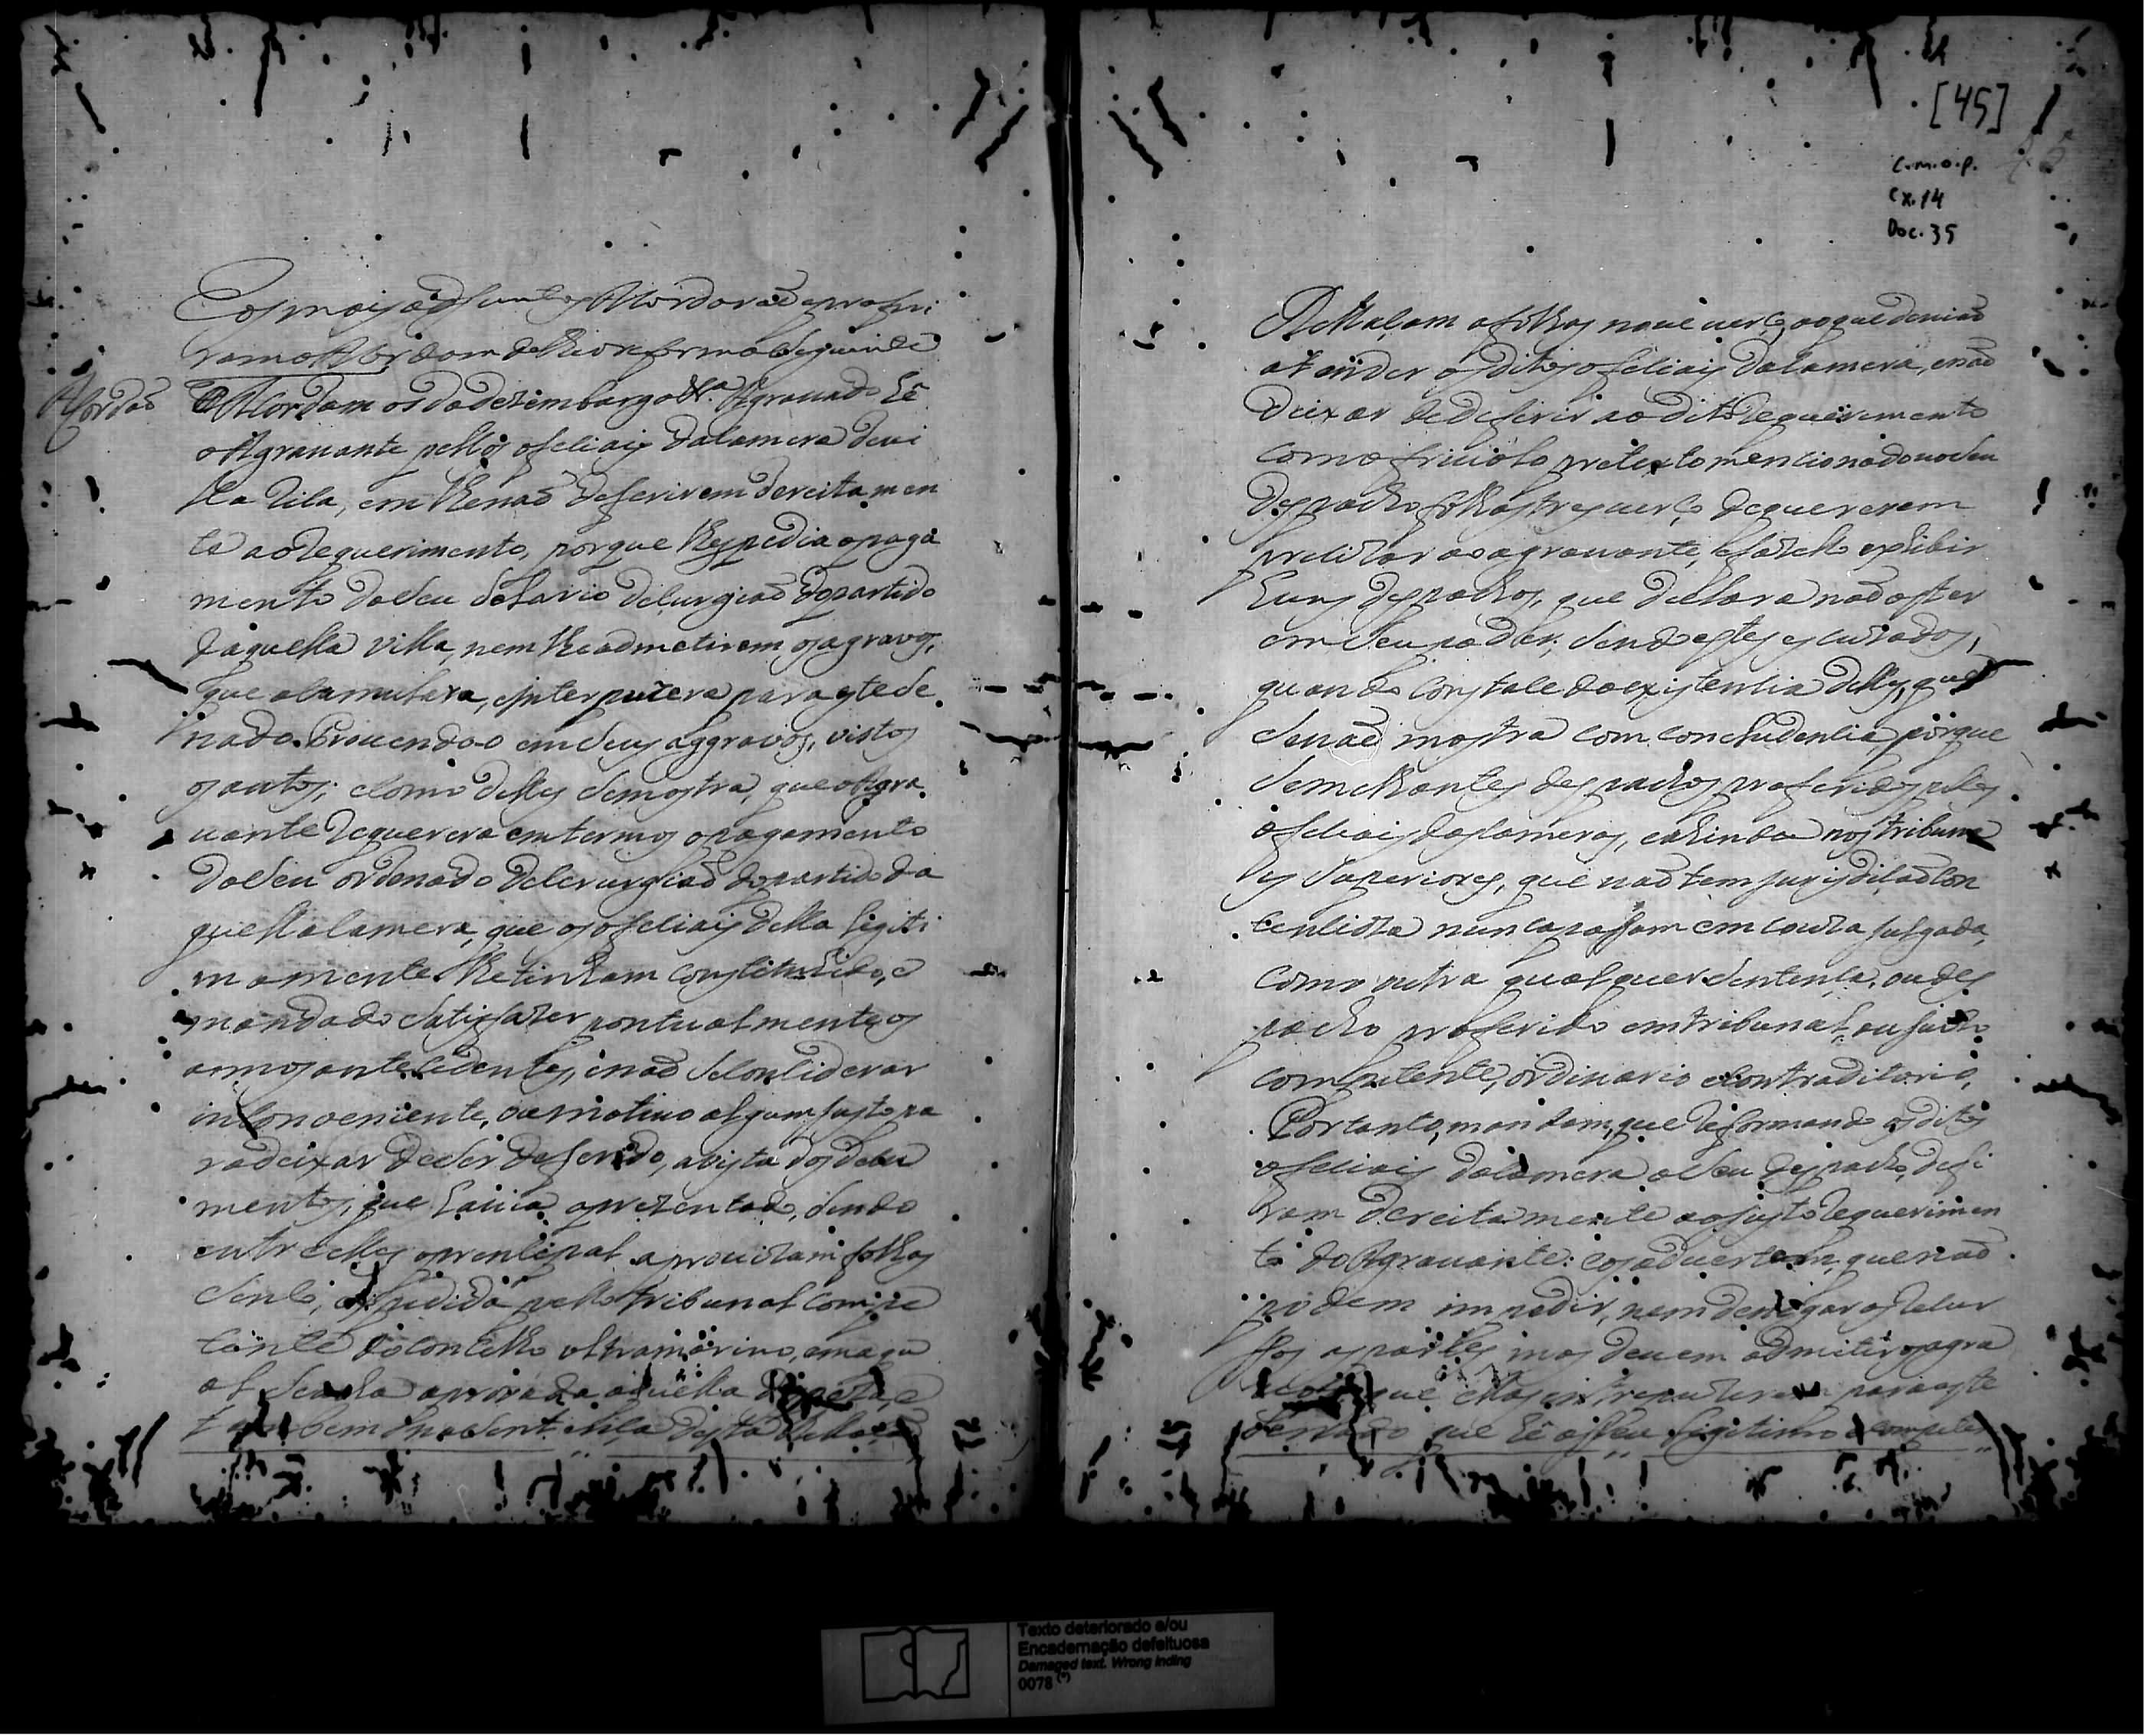 Eos mais adjuntos Acordaraõ e proferi
ramo Acordam de theor e forma seguinte
Acordaõ
Acordam os do dezembargo &.ª Agrauado hê
o Agrauante pellos ofeciais da Camera de
Villa, em lhe naõ deferirem dereitamen
te ao requerimento, porque lhes pedia o paga
mento do seu selario de Curgiaõ do partido
daquella villa, nem lhe admetirem os agravos,
que acamulara, e interpuzera para este Se
nado. Prouendo-o em seus aggravos, vistos
os autos; e como delles se mostra, que o Agra
uante requerera em termos o pagamento
do seu ordenado de Cerurgiaõ do partido da
quella Camera, que os ofeciais della legiti
mamente lhe tinham constituhido, e
mandado satisfazer pontualmente os
annos antecedentes, e naõ se conciderar
inconveniente, ou motivo algum justo pa
ra deixar de ser deferido, a vista dos docu
mentos, que hauia aprezentado, sendo
entre elles o prencipal a provizam folhas
sinco, expedida pello tribunal compe
tente do Concelho ultramarino, em a qu
al se acha aprovada aquella despeza, e
tambem na sentença desta Rella
[45]
C.M.O.P.
Cx. 14
Doc. 35
Rellaçam a folhas noue verso, ao que deuiaõ
atender os ditos ofeciais da Camera, e naõ
deixar de deferir ao dito requerimento
com o friuolo pretexto mencionado no seu
despacho folhas tres verso de quererem
precizar ao agrauante, e fazello exhibir
huns despachos, que declara naõ os ter
em seu poder; sendo estes escuzados,
quando constace da existencia delles, que
se naõ mostra com concludencia, porque
semelhantes despachos proferidos pellos
ofeciais das Cameras, e ahinda nos tribuna
es Superiores, que naõ tem jurisdicaõ con
tencioza nunca passam em couza julgada,
como outra qualquer sentença, ou des
pacho proferido em tribunal, ou juizo
competente, ordinario e contraditorio,
Portanto, mandam, que reformando os ditos
ofeciais da Camera o seu despacho, defi
ram dereitamente ao justo requerimen
to do Agrauante: e os aduertem, que naõ
podem impedir, nem denegar os recur
sos as partes, mas deuem admitir os agra
que ellas interpuzerem para este
Senado que hê o seu legitimo e competen
Texto deteriorado e/ou
Encadernação defeituosa
Damaged text. Wrong inding
0078 (*)